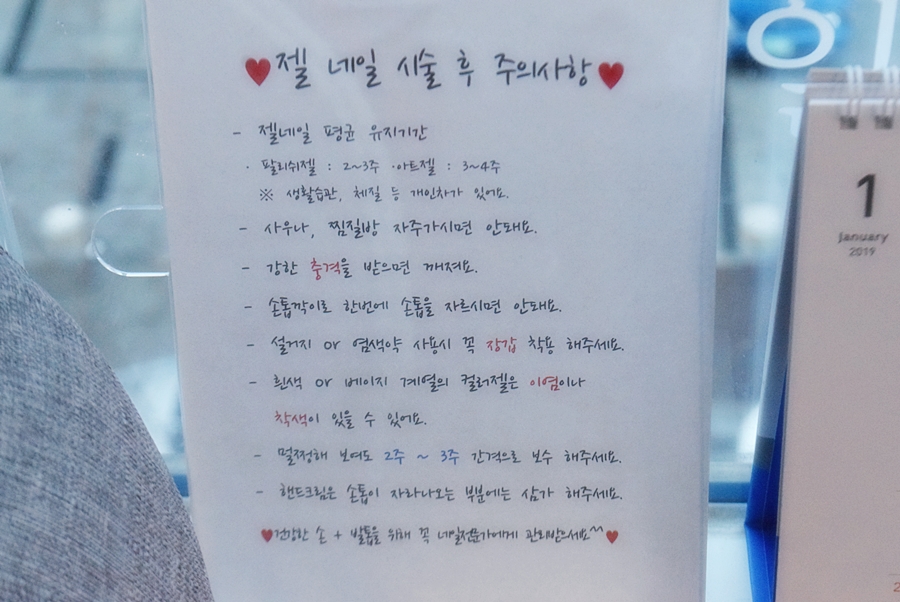 ♥젤 네일 시술 후 주의사항♥
- 젤네일 평균 유지기간
· 팔리쉬젤 : 2~3주 ·아트젤 : 3~4주
※ 생활습관, 체질 등 개인차가 있어요.
- 사우나, 찜질방 자주가시면 안돼요.
- 강한 충격을 받으면 깨져요.
- 손톱깍이로 한번에 손톱을 자르시면 안돼요.
- 설거지 or 염색약 사용시 꼭 장갑 착용 해주세요.
- 흰색 or 베이지 계열의 컬러젤은 이염이나
착색이 있을 수 있어요.
- 멀쩡해 보여도 2주 ~ 3주 간격으로 보수 해주세요.
- 핸드크림은 손톱이 자라나오는 부분에는 삼가 해주세요.
♥건강한 손 + 발톱을 위해 꼭 네일전문가에게 관리받으세요^^♥
1
January
2019